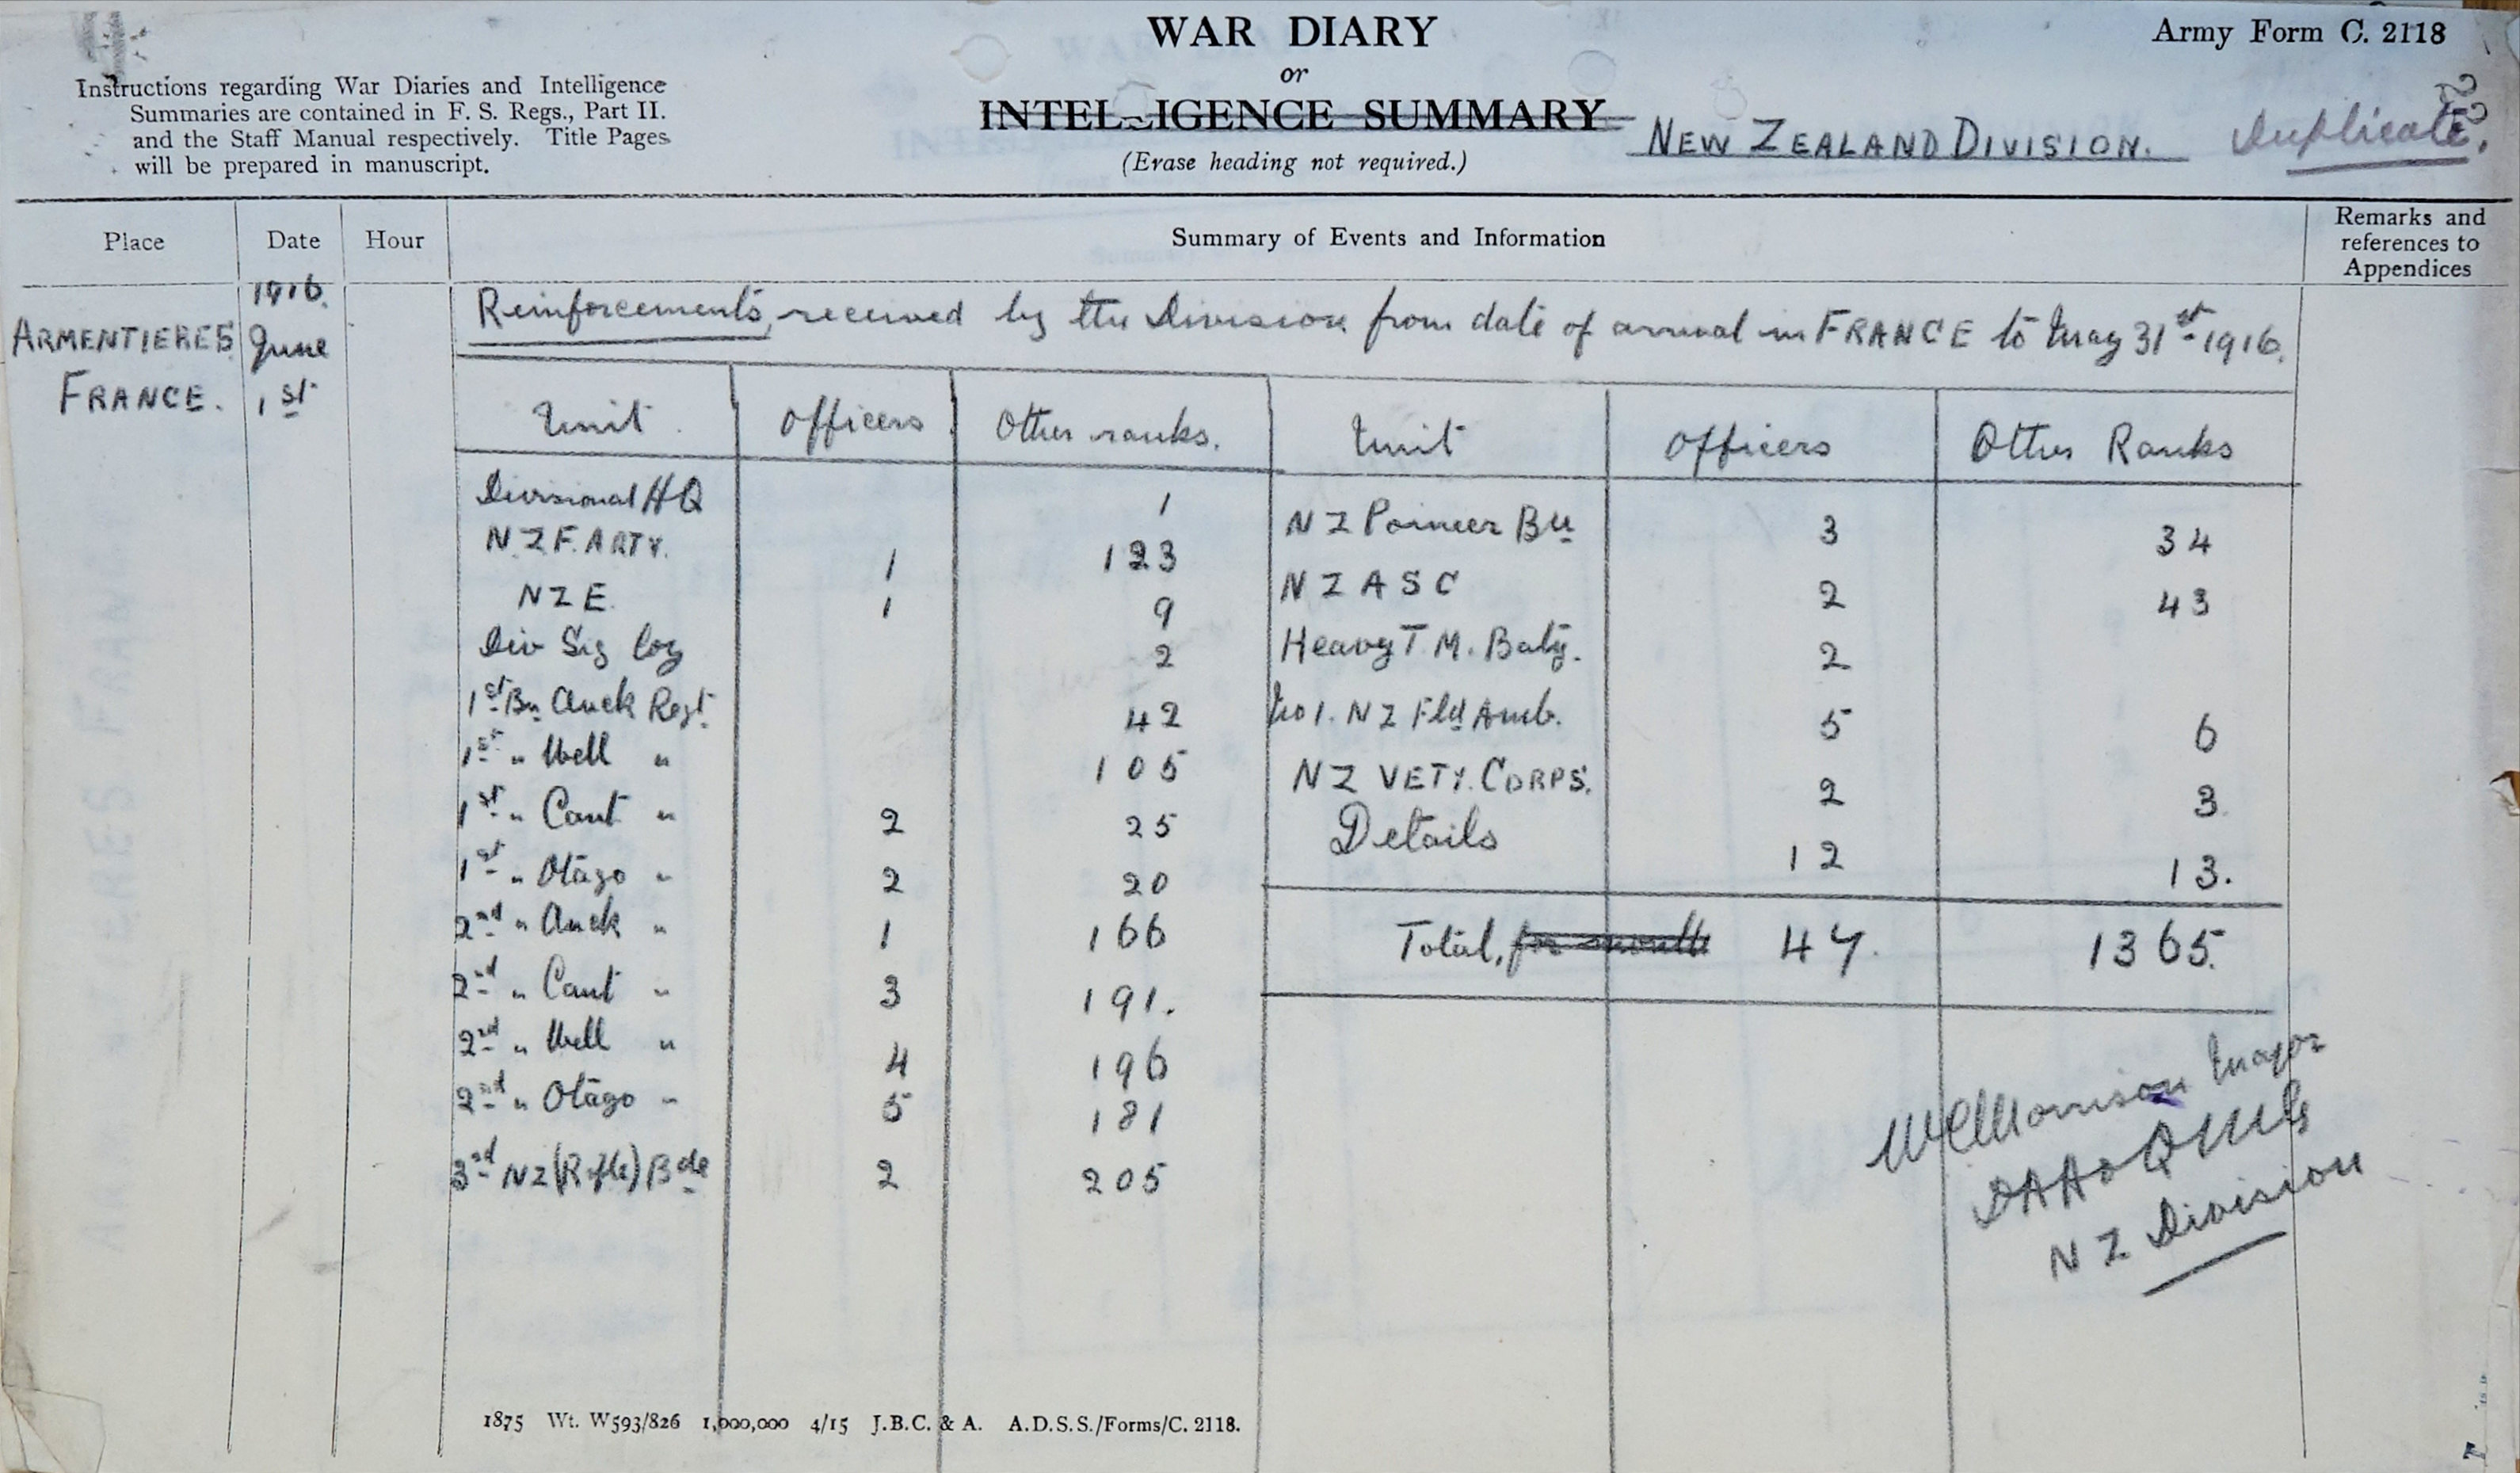 WAR DIARY
or
INTELLIGENCE SUMMARY
(Erase heading not required.)
Army Form C. 2118
Instructions regarding War Diaries and Intelligence
Summaries are contained in F. S. Regs., Part II.
and the Staff Manual respectively. Title Pages
will be prepared in manuscript.
NEW ZEALAND DIVISION.
Duplicate.
Place Date Hour Summary of Events and Information Remarks and references to Appendices
ARMENTIERES FRANCE. 1916. June 1st
Reinforcements, received by the Division from date of arrival in FRANCE to May 31st 1916.
Unit. Officers Other ranks.
Divisional HQ 1
N.Z.F. ARTY. 1 123
NZE. 1 9
Div Sig Coy 2
1st Bn Auck Regt. 42
1st " Well " 105
1st " Cant " 2 25
1st " Otago " 2 20
2nd " Auck " 1 166
2nd " Cant " 3 191.
2nd " Well " 4 196
2nd " Otago " 5 181
3rd NZ (Rifle) Bde 2 205
Unit Officers Other Ranks
NZ Poineer Bn 3 34
NZ ASC 2 43
Heavy T.M. Baty. 2
No 1. NZ Fld Amb. 5 6
NZ VETY. CORPS. 2 3
Details 12 13.
Total, for month 47. 1365.
W C Morrison Major
DAA & QMG
NZ Division
1875 Wt. W593/826 1,000,000 4/15 J.B.C. & A. A.D.S.S./Forms/C. 2118.